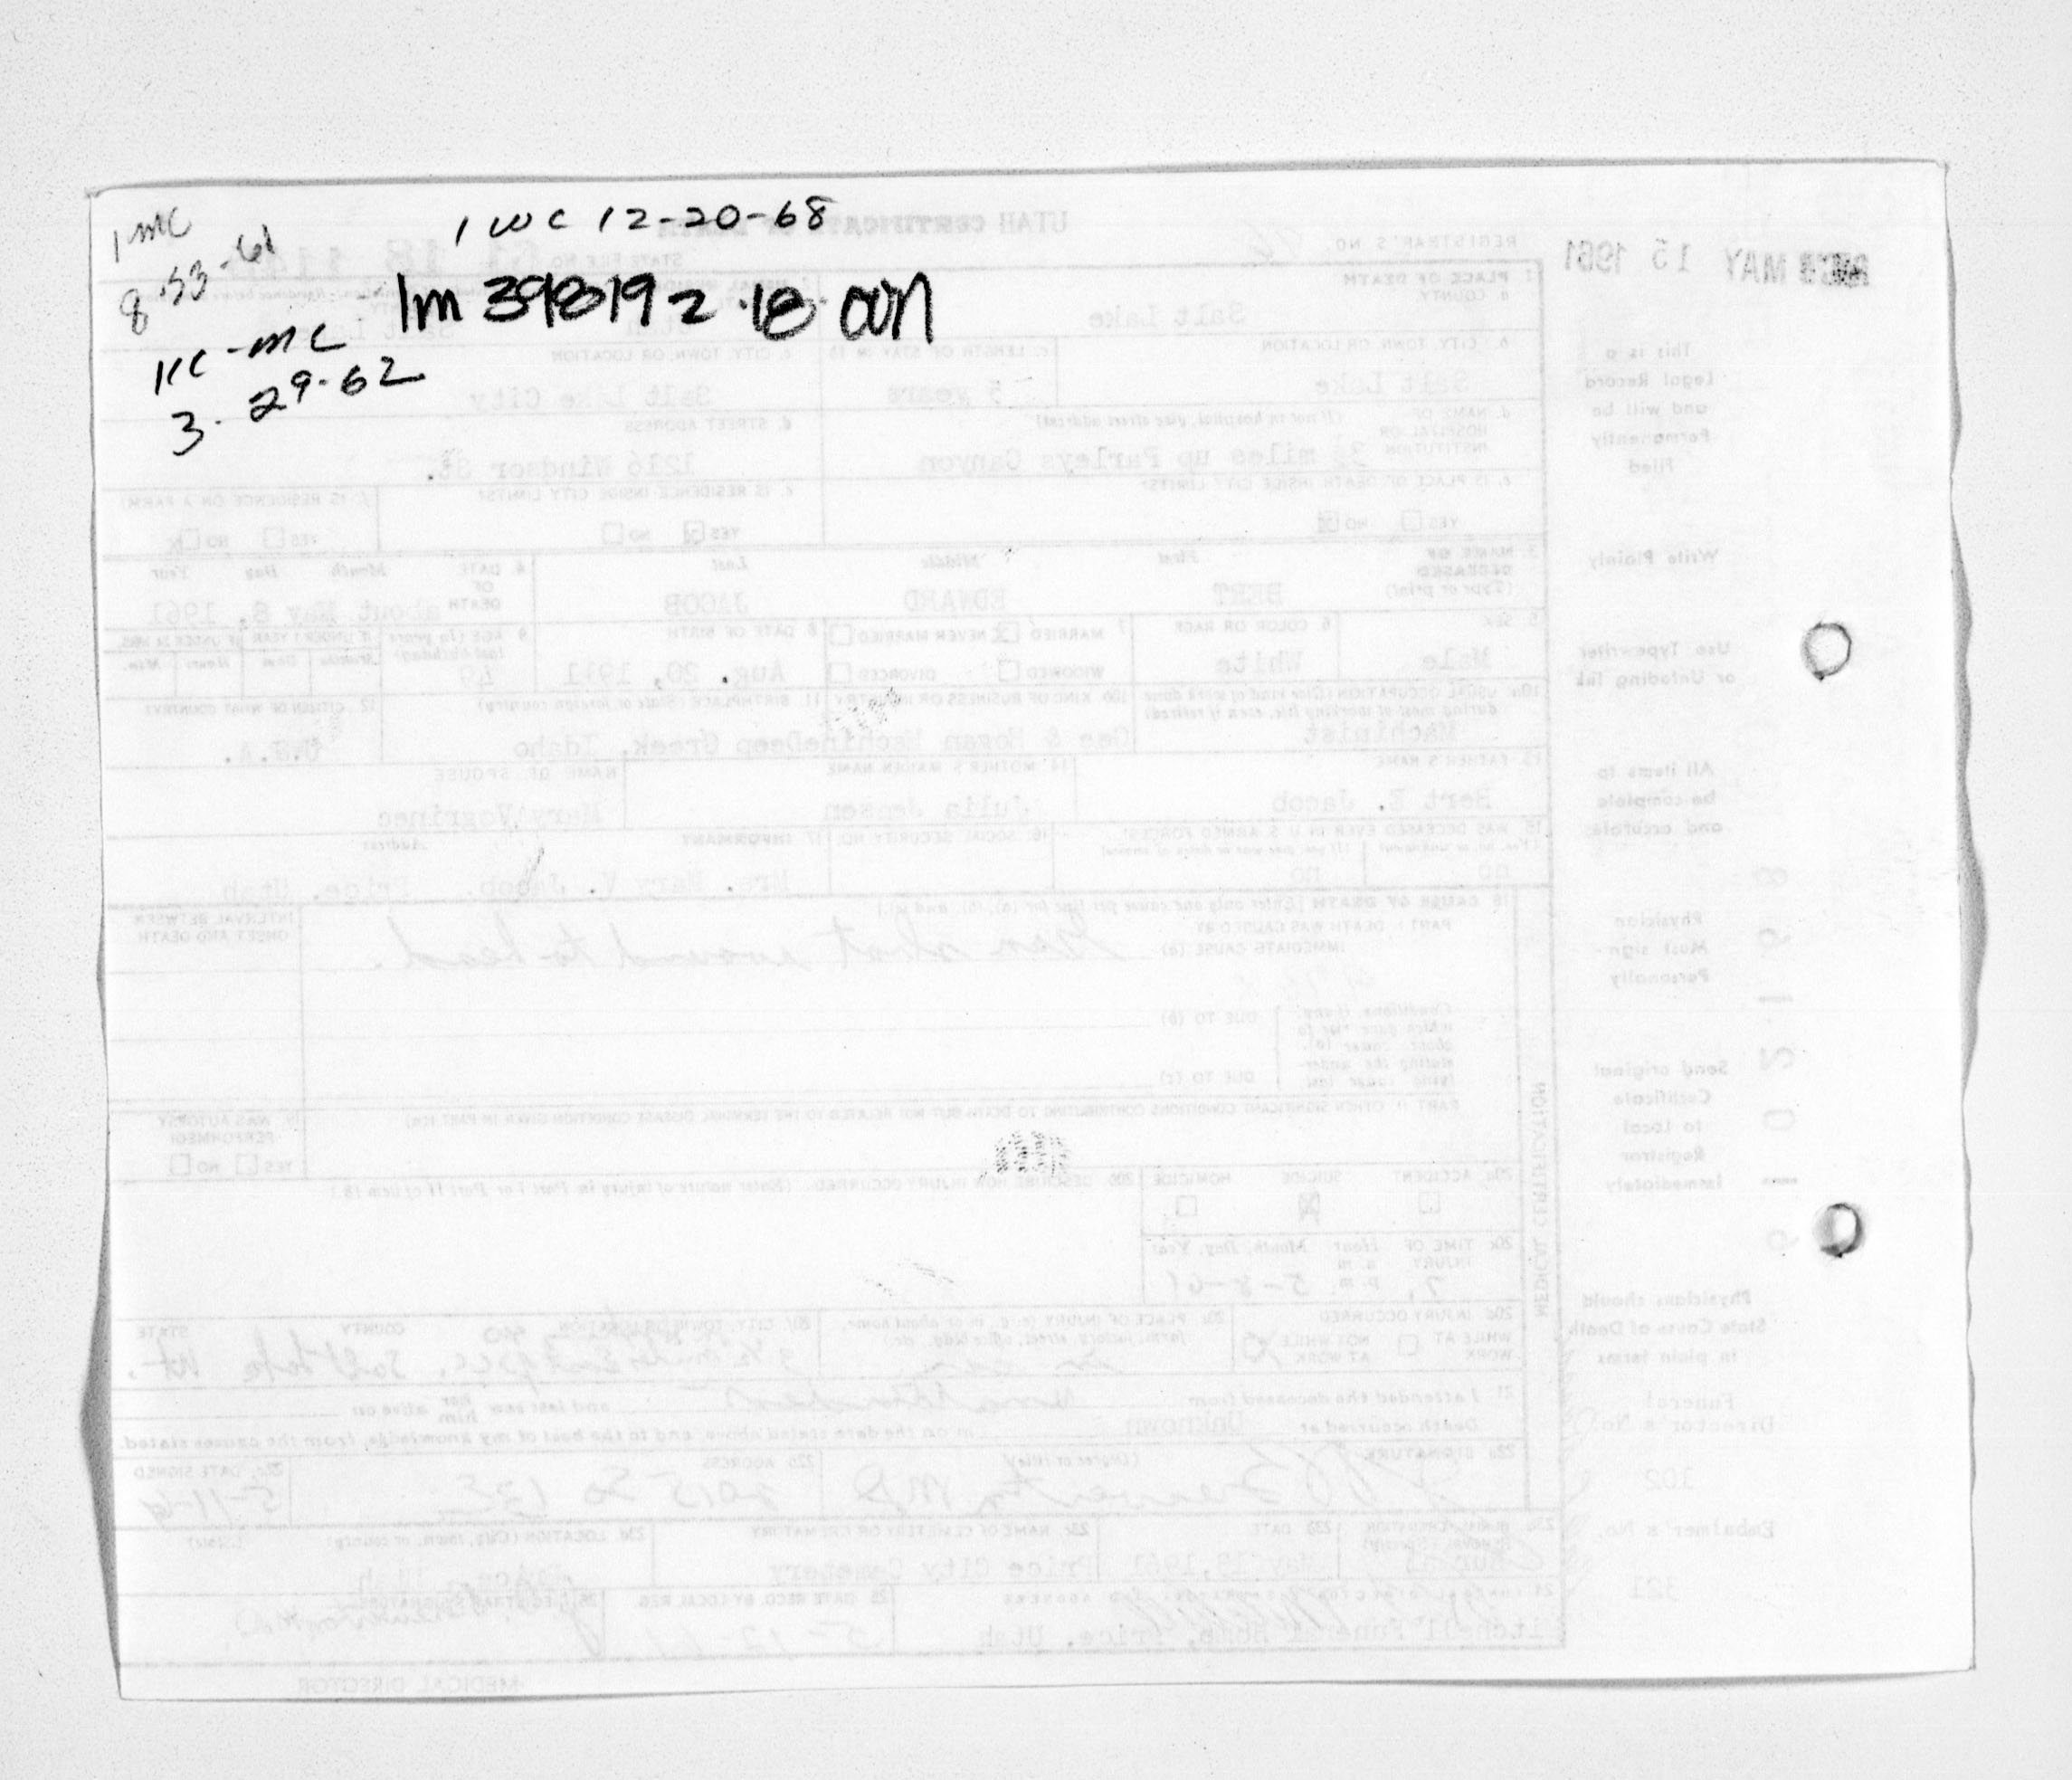 1 mc
8-23-61
1 wc 12-20-68
1m 398192.18 
1cc-mc
3-29-62
UTAH CERTIFICATE OF DEATH
REGISTRAR'S NO.
STATE FILE NO.
MAY 15 1961
1. PLACE OF DEATH
a. COUNTY
Salt Lake
b. CITY, TOWN, OR LOCATION
c. LENGTH OF STAY IN 1b
c. CITY, TOWN, OR LOCATION
Salt Lake
5 years
Salt Lake City
d. NAME OF HOSPITAL OR INSTITUTION
(If not in hospital, give street address)
d. STREET ADDRESS
miles up Parleys Canyon
1216 Windsor St.
e. IS PLACE OF DEATH INSIDE CITY LIMITS?
e. IS RESIDENCE INSIDE CITY LIMITS?
f. IS RESIDENCE ON A FARM?
YES NO
YES NO
YES NO
3. NAME OF DECEASED
(Type or print)
First Middle Last
BERT EDWARD JACOB
4. DATE OF DEATH
Month Day Year
about May 8, 1961
5. SEX
Male
6. COLOR OR RACE
White
7. MARRIED NEVER MARRIED
WIDOWED DIVORCED
8. DATE OF BIRTH
Aug. 20, 1911
9. AGE (In years last birthday)
49
IF UNDER 1 YEAR IF UNDER 24 HRS.
Months Days Hours Min.
10a. USUAL OCCUPATION (Give kind of work done during most of working life, even if retired)
Machinist
10b. KIND OF BUSINESS OR INDUSTRY
Gee & Hogan Machine
11. BIRTHPLACE (State or foreign country)
Deep Creek, Idaho
12. CITIZEN OF WHAT COUNTRY?
U.S.A.
13. FATHER'S NAME
Bert E. Jacob
14. MOTHER'S MAIDEN NAME
Julia Jensen
NAME OF SPOUSE
Mary Vogrinec
15. WAS DECEASED EVER IN U.S. ARMED FORCES?
(Yes, no, or unknown) (If yes, give war or dates of service)
no no
16. SOCIAL SECURITY NO.
17. INFORMANT Address
Mrs. Mary V. Jacob. Price, Utah
18. CAUSE OF DEATH [Enter only one cause per line for (a), (b), and (c).]
PART I. DEATH WAS CAUSED BY:
IMMEDIATE CAUSE (a)
Gun shot wound to head.
INTERVAL BETWEEN ONSET AND DEATH
Conditions, if any,
which gave rise to
above cause (a),
stating the under-
lying cause last.
DUE TO (b)
DUE TO (c)
PART II. OTHER SIGNIFICANT CONDITIONS CONTRIBUTING TO DEATH BUT NOT RELATED TO THE TERMINAL DISEASE CONDITION GIVEN IN PART I(a)
19. WAS AUTOPSY PERFORMED?
YES NO
20a. ACCIDENT SUICIDE HOMICIDE
20b. DESCRIBE HOW INJURY OCCURRED. (Enter nature of injury in Part I or Part II of item 18.)
20c. TIME OF INJURY
Hour Month, Day, Year
a.m.
p.m.
7, 5-8-61
20d. INJURY OCCURRED
WHILE AT WORK
NOT WHILE AT WORK
20e. PLACE OF INJURY (e.g., in or about home, farm, factory, street, office bldg., etc.)
20f. CITY, TOWN, OR LOCATION COUNTY STATE
Salt Lake Ut.
21. I attended the deceased from
and last saw her him alive on
Death occurred at Unknown
m on the date stated above, and to the best of my knowledge, from the causes stated.
22a. SIGNATURE (Degree or title)
MD
22b. ADDRESS
2015 So 13E
22c. DATE SIGNED
5-11-61
23a. BURIAL, CREMATION, REMOVAL (Specify)
Burial
23b. DATE
May 13, 1961
23c. NAME OF CEMETERY OR CREMATORY
Price City Cemetery
23d. LOCATION (City, town, or county) (State)
Price, Utah
Mitchell Funeral Home, Price, Utah
25. DATE RECD. BY LOCAL REG.
5-12-61
26. REGISTRAR'S SIGNATURE
MEDICAL DIRECTOR
MEDICAL CERTIFICATION
This is a
Legal Record
and will be
Permanently
Filed
Write Plainly
Use Typewriter
or Unfading Ink
All items to
be complete
and accurate
Physician
Must sign-
Personally
Send original
Certificate
to Local
Registrar
Immediately
Physicians should
State Cause of Death
in plain terms
Funeral
Director's No.
102
Embalmer's No.
321